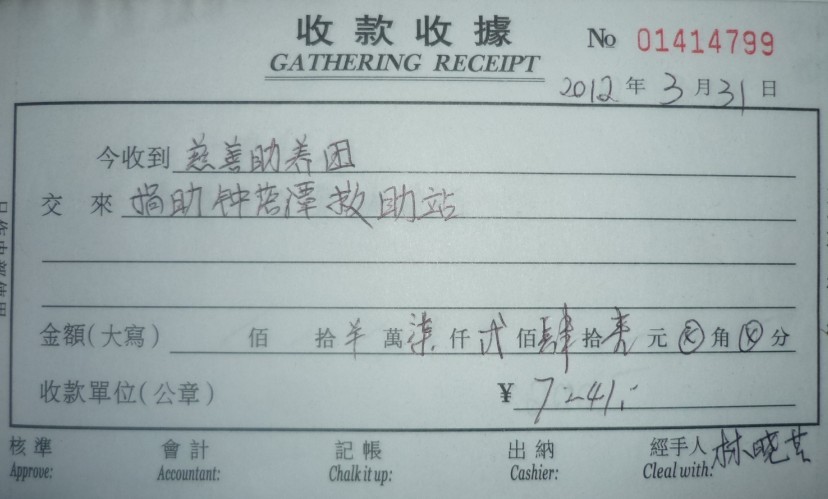 收款收據
GATHERING RECEIPT
№ 01414799
2012年3月31日
今收到 慈善助养团
交來 捐助钟落潭救助站
金額(大寫) 佰 拾 羊 萬 柒 仟 弍 佰 肆 拾 壹 元 ⊗ 角 ⊗ 分
收款單位(公章) ¥ 7241.-
核準 會計 記帳 出納 經手人 林晓
Approve: Accountant: Chalk it up: Cashier: Cleal with: